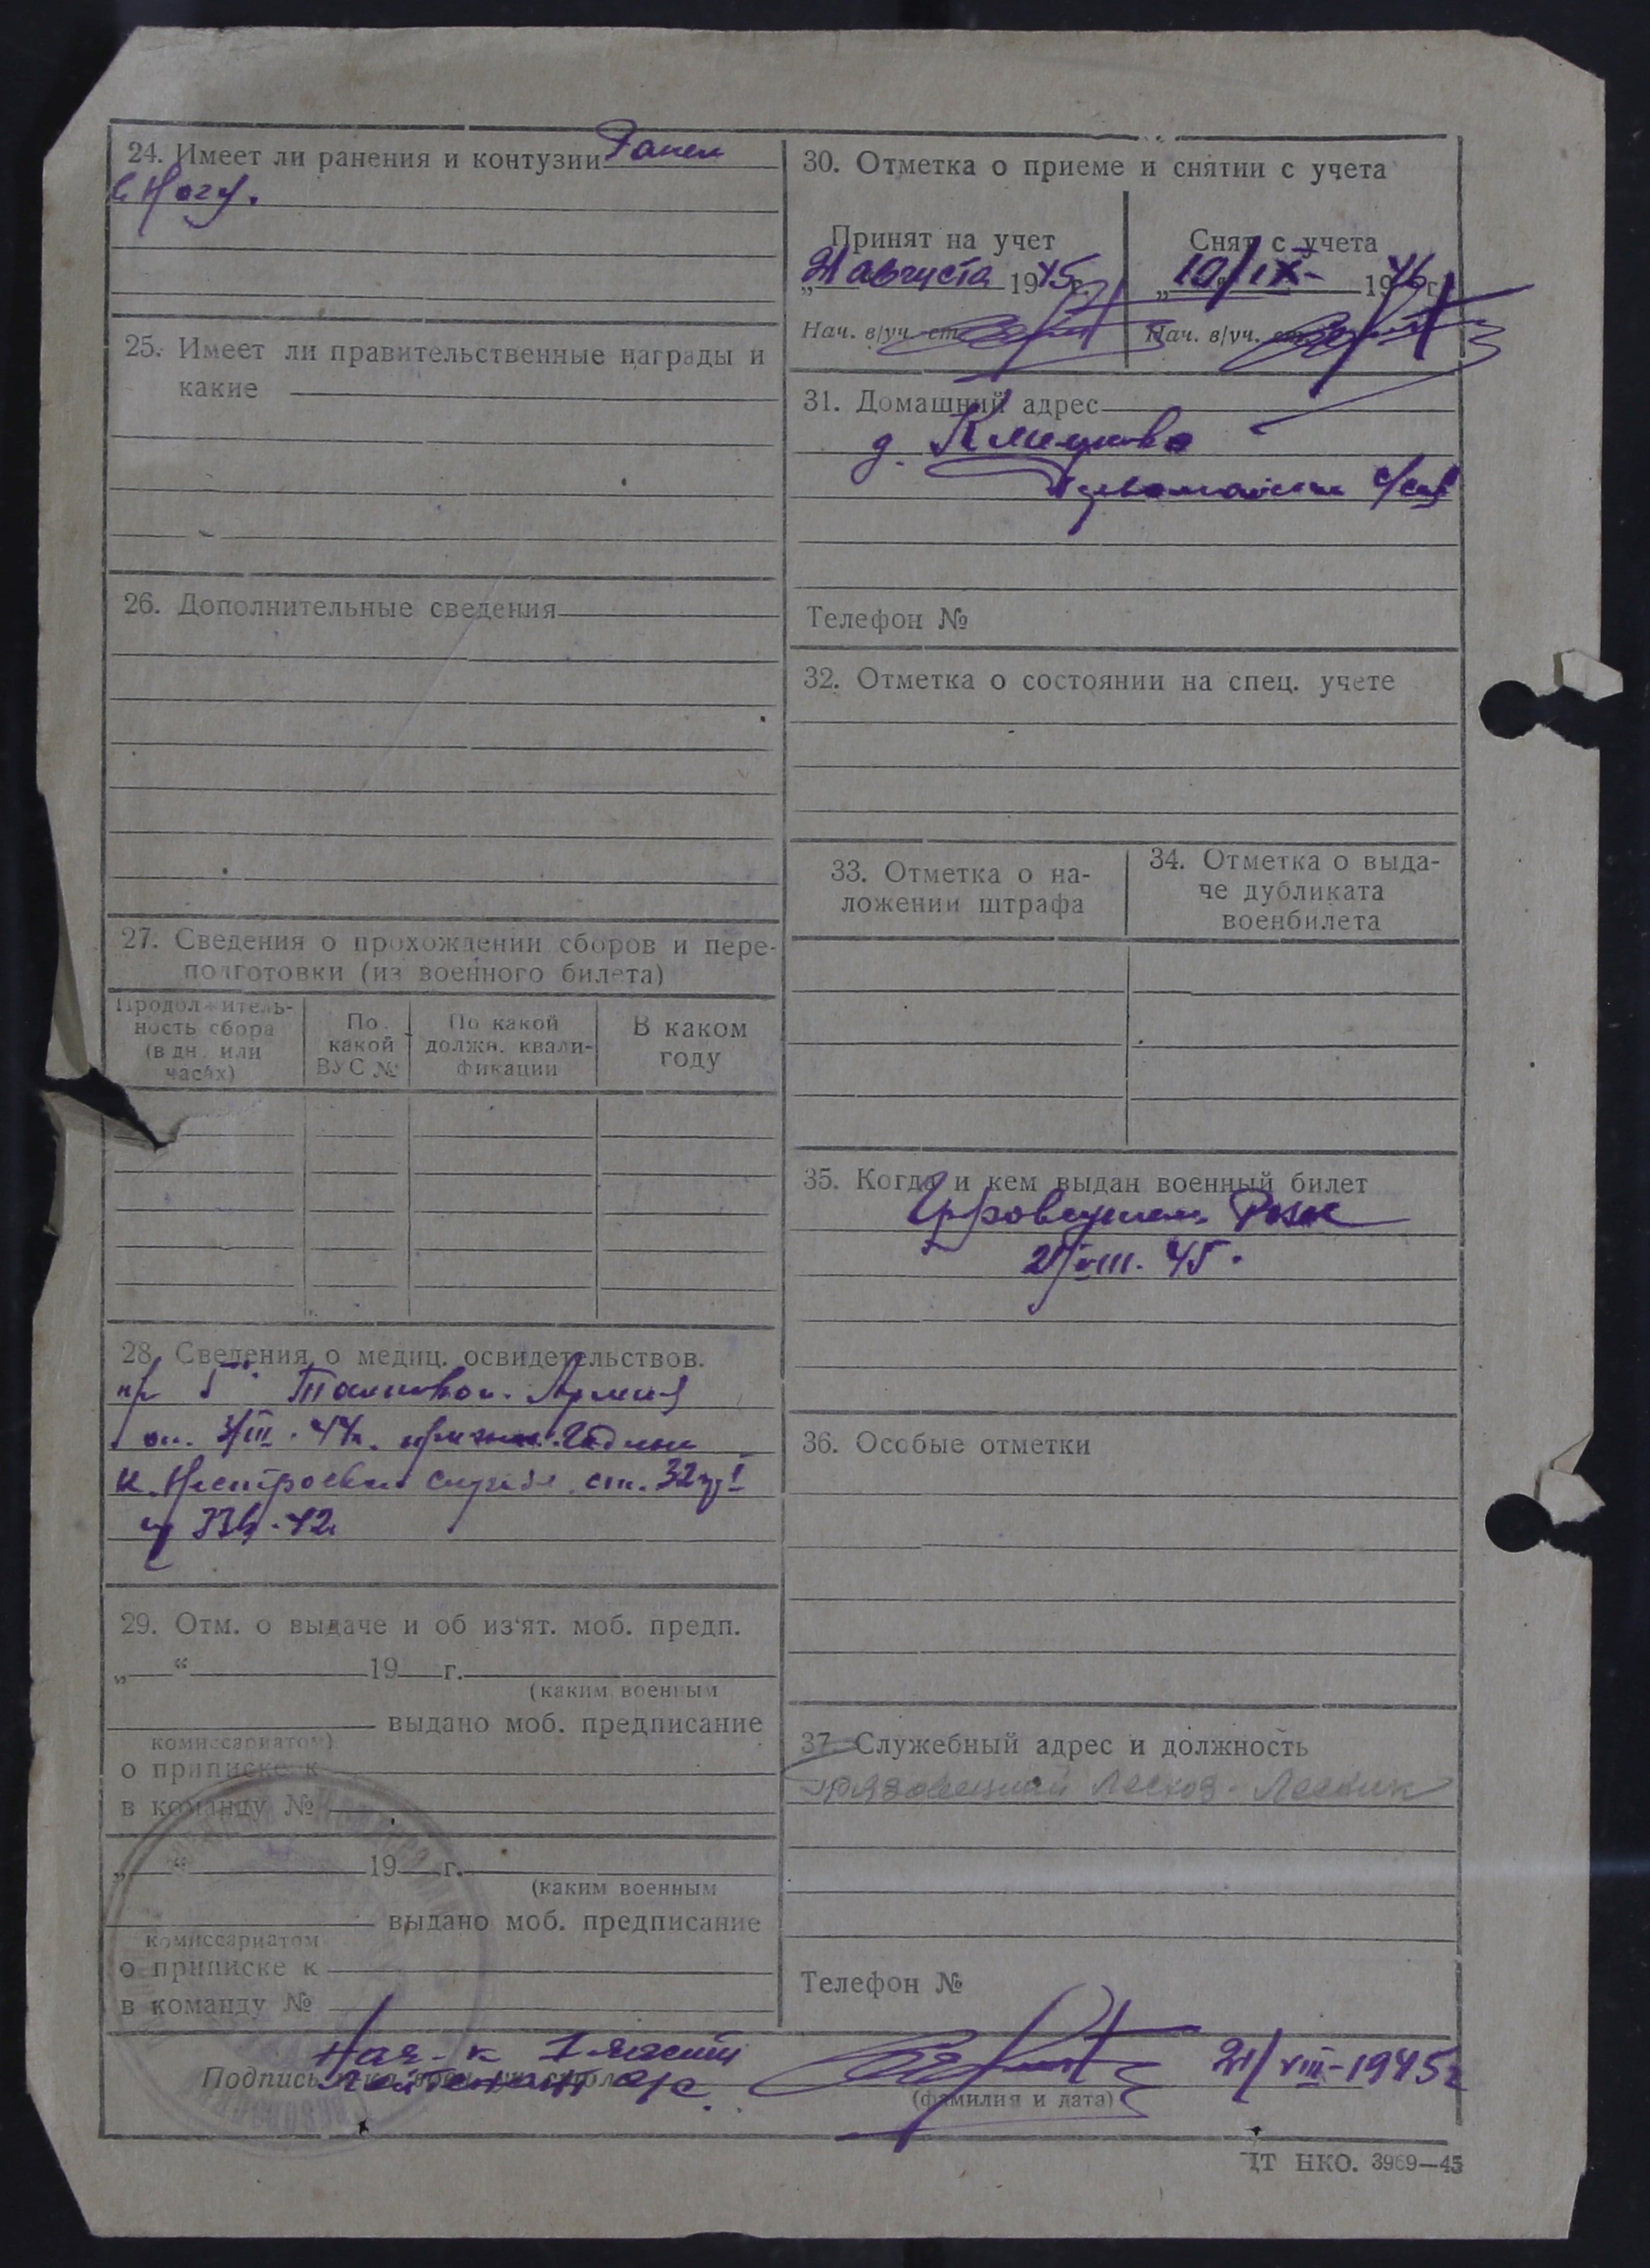 24. Имеет ли ранения и контузии Ранен
в Ногу.
25. Имеет ли правительственные награды и
какие
26. Дополнительные сведения
27. Сведения о прохождении сборов и пере-
подготовки (из военного билета)
Продолжитель-
ность сбора
(в дн. или
часах)
По
какой
ВУС №
По какой
должн. квали-
фикации
В каком
году
28. Сведения о медиц. освидетельствов.
5 Танковой Армии
3/III. 44г. Годен
к Нестроевой службе ст. 32 гр I
42
29. Отм. о выдаче и об из‘ят. моб. предп.
„ “ 19 г.
(каким военным
выдано моб. предписание
комиссариатом)
о приписке к
в команду №
„ “ 19 г.
(каким военным
выдано моб. предписание
комиссариатом
о приписке к
в команду №
30. Отметка о приеме и снятии с учета
Принят на учет
21 августа 1945г.
Нач. в/уч. ст
Снят с учета
„10/IX- 1946г.
Нач. в/уч.
31. Домашний адрес
д. Климово
Первомайский с/сов
Телефон №
32. Отметка о состоянии на спец. учете
33. Отметка о на-
ложении штрафа
34. Отметка о выда-
че дубликата
военбилета
35. Когда и кем выдан военный билет
Грязовецким РВК
21/VIII. 45.
36. Особые отметки
37. Служебный адрес и должность
Грязовецкий Лесхоз - Лесник
Телефон №
Нач-к 1 части
Подпись лейтенант а/с
21/VIII-1945г
(фамилия и дата)
ЦТ НКО. 3969—45